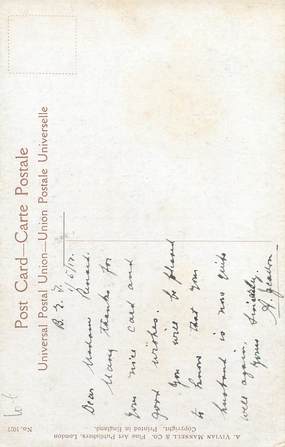 Post Card—Carte Postale
Universal Postal Union—Union Postale Universelle
B. E. F.
1/5/17.
Dear Madam Renard.
Many thanks for
your nice card and
good wishes.
You will be pleased
to know that my
husband is now quite
well again.
Yours Sincerely
No. 1071
A. VIVIAN MANSELL & CO., Fine Art Publishers, London
Copyright. Printed in England.